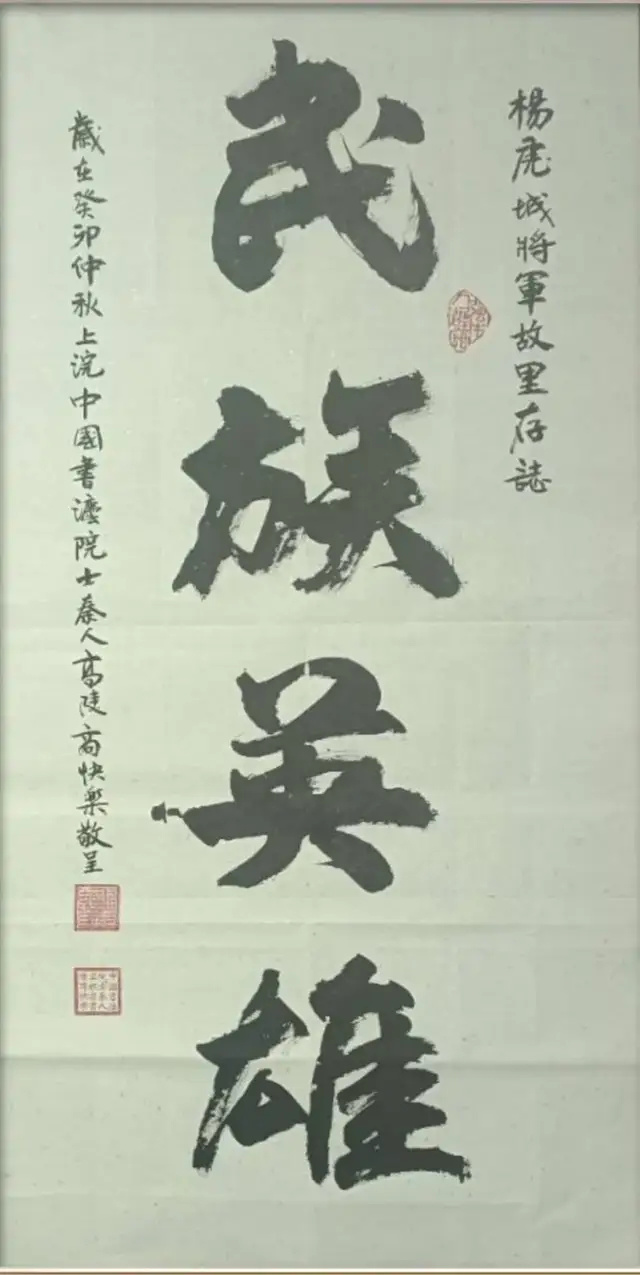 楊虎城將軍故里存誌
民族英雄
歲在癸卯仲秋上浣中國書瀍院士秦人高陵高快樂敬呈